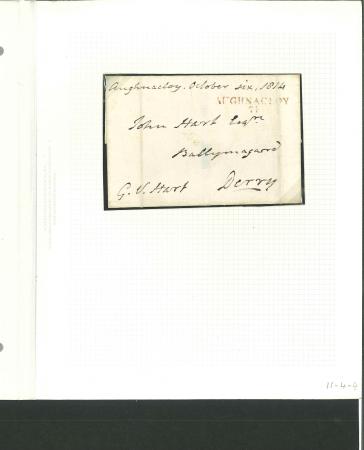 Aughnacloy. October six, 1814
AUGHNACLOY
71
John Hart Esqre
Ballymagard
G. V. Hart Derry
11-4-9